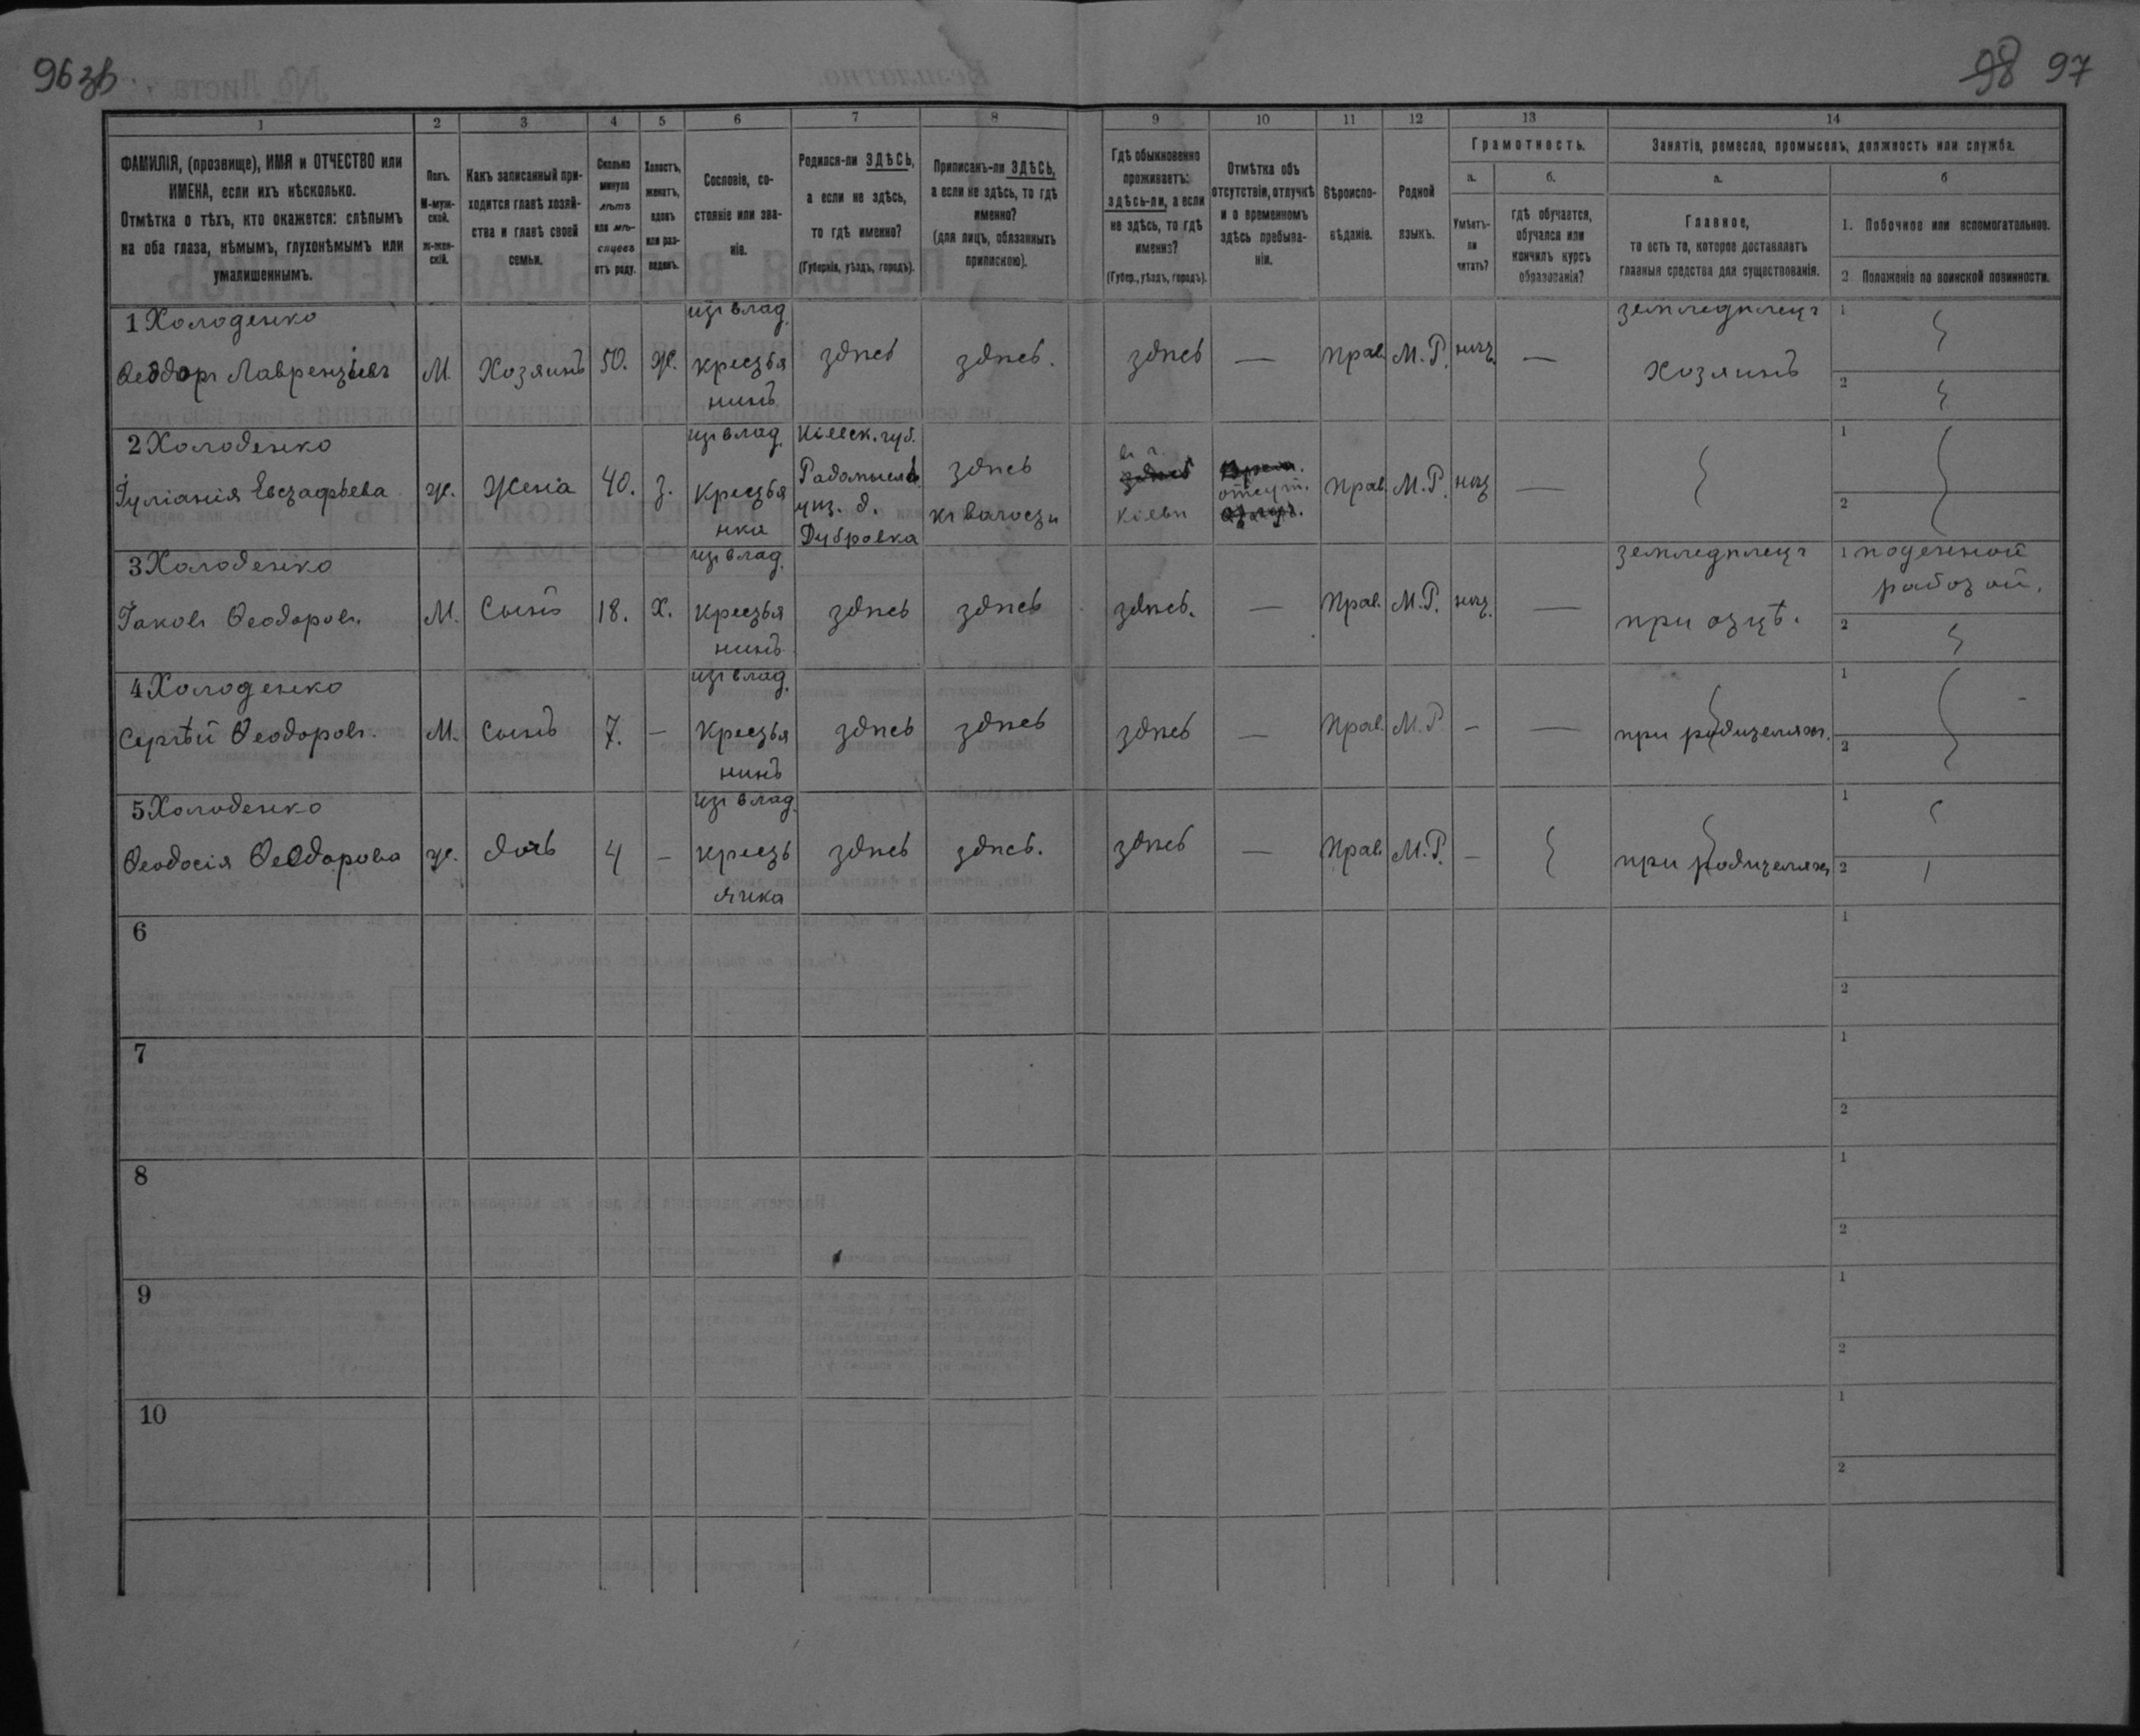 96 зв
98 97
1 2 3 4 5 6 7 8 9 10 11 12 13 14
ФАМИЛІЯ, (прозвище), ИМЯ и ОТЧЕСТВО или
ИМЕНА, если ихъ нѣсколько.
Отмѣтка о тѣхъ, кто окажется: слѣпымъ
на оба глаза, нѣмымъ, глухонѣмымъ или
умалишеннымъ.
Полъ.
М-муж-
ской.
ж-жен-
скій.
Какъ записанный при-
ходится главѣ хозяй-
ства и главѣ своей
семьи.
Сколько
минуло
лѣтъ
или мѣ-
сяцевъ
отъ роду.
Холостъ,
женатъ,
вдовъ
или раз-
веденъ.
Сословіе, со-
стояніе или зва-
ніе.
Родился-ли ЗДѢСЬ,
а если не здѣсь,
то гдѣ именно?
(Губернія, уѣздъ, городъ).
Приписанъ-ли ЗДѢСЬ,
а если не здѣсь, то гдѣ
именно?
(для лицъ, обязанныхъ
припискою).
Гдѣ обыкновенно
проживаетъ:
здѣсь-ли, а если
не здѣсь, то гдѣ
именно?
(Губер., уѣздъ, городъ).
Отмѣтка объ
отсутствіи, отлучкѣ
и о временномъ
здѣсь пребыва-
ніи.
Вѣроиспо-
вѣданіе.
Родной
языкъ.
Грамотность.
а.
Умѣетъ-
ли
читать?
б.
гдѣ обучается,
обучался или
кончилъ курсъ
образованія?
Занятіе, ремесло, промыселъ, должность или служба.
а.
Главное,
то есть то, которое доставляетъ
главныя средства для существованія.
б
1. Побочное или вспомогательное.
2 Положеніе по воинской повинности.
1 Холоденко из влад. земледѣлец 1
Феодор Лаврентіев М. Хозяинъ 50. ж. крестья здѣсь здѣсь. здѣсь — Прав. М.Р. нѣт. — хозяинъ
нинъ 2
2 Холоденко из влад. Кіевск. губ. 1
Іуліанія Евстафьева ж. Жена 40. з. Крестья Радомысл. здѣсь в г. здѣсь отсут. Прав. М.Р. нѣт —
уѣз. д. к волости Кіевѣ 2
нка Дубровка
3 Холоденко из влад. земледѣлец 1 поденной
Іаков Феодоров. М. Сынъ 18. Х. Крестья здѣсь здѣсь здѣсь. — Прав. М.Р. нѣт. — при отцѣ. работой.
нинъ 2
4 Холоденко из влад. 1
Сергѣй Феодоров. М. Сынъ 7. — Крестья здѣсь здѣсь здѣсь — Прав. М.Р. — — при родителях.
нинъ 2
5 Холоденко из влад. 1
Феодосія Феодорова ж. Дочь 4 — Кресть здѣсь здѣсь. здѣсь — Прав. М.Р. — при родителях 2
янка
6 1
2
7 1
2
8 1
2
9 1
2
10 1
2